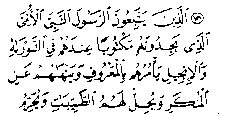 الَّذِينَ يَتَّبِعُونَ الرَّسُولَ النَّبِيَّ الْأُمِّيَّ
الَّذِي يَجِدُونَهُ مَكْتُوبًا عِنْدَهُمْ فِي التَّوْرَاةِ
وَالْإِنْجِيلِ يَأْمُرُهُمْ بِالْمَعْرُوفِ وَيَنْهَاهُمْ عَنِ
الْمُنْكَرِ وَيُحِلُّ لَهُمُ الطَّيِّبَاتِ وَيُحَرِّمُ